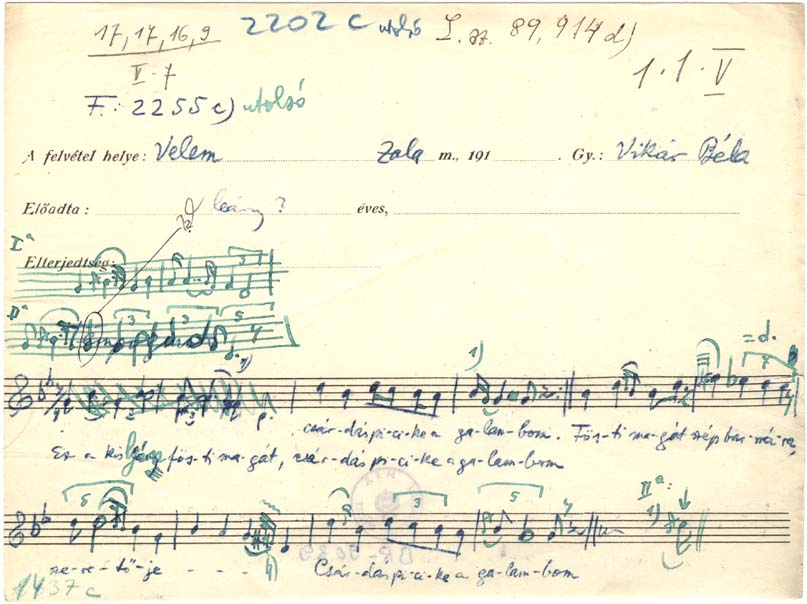 17, 17, 16, 9 2202 c utolsó I. sz. 89, 914 d)
V-7 1.1.V
F: 2255 c) utolsó
A felvétel helye: Velem Zala m., 191 . Gy.: Vikár Béla
Előadta: leány? éves,
Iª
Elterjedtség:
3
IIª
3 3 5
1) 1) =d.
csár-dás pi-ci-ke a ga-lam-bom. Fös-ti ma-gát szép bar-ná-ra,
Ez a kis lány fös-ti ma-gát, csár-dás pi-ci-ke a ga-lam-bom
5 3 5 IIª:
1)
sze-re-tő-je - - - - Csár-dás pi-ci-ke a ga-lam-bom
1437 c